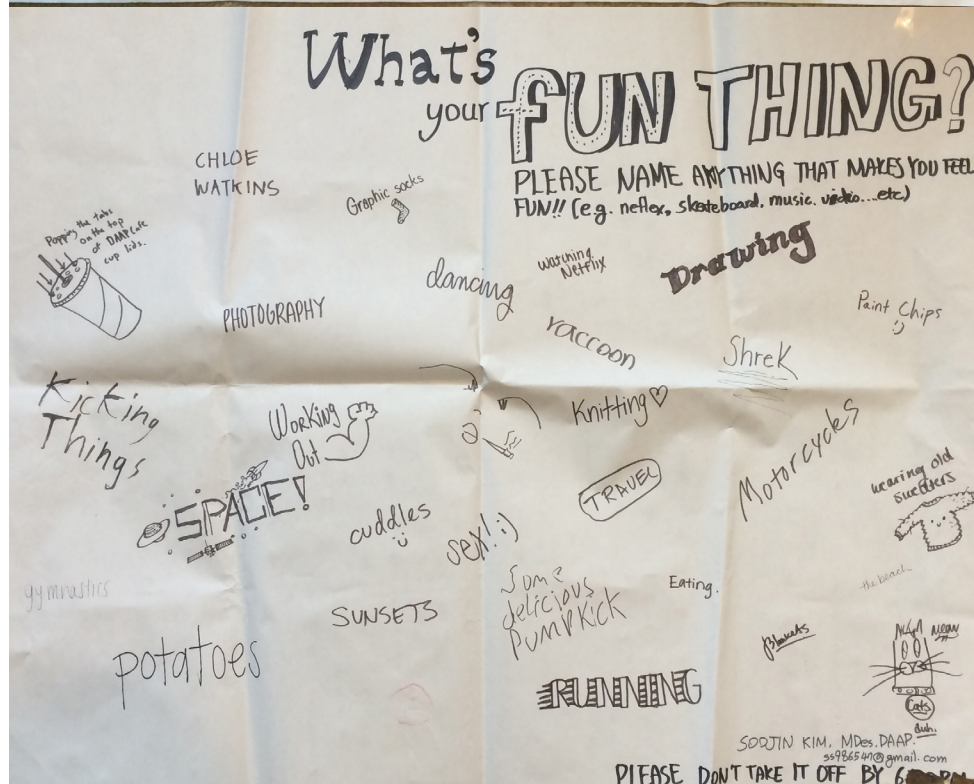 What's
your FUN THING?
PLEASE NAME ANYTHING THAT MAKES YOU FEEL
FUN!! (e.g. neflex, skateboard, music, vidio...etc)
CHLOE
WATKINS
Graphic socks
Popping the tabs
on the top
of DAAP Cafe
cup lids.
dancing
watching
Netflix
Drawing
PHOTOGRAPHY
raccoon
Paint Chips
Shrek
Kicking
Things
Working
Out
Knitting
Motorcycles
SPACE!
TRAVEL
wearing old
sweaters
cuddles
sex! :)
gymnastics
Some
delicious
PUMPKICK
Eating.
the beach
SUNSETS
potatoes
Blankets
Meow
RUNNING
Cats
duh.
SOOJIN KIM. MDes. DAAP.
ss986547@gmail.com
PLEASE DON'T TAKE IT OFF BY